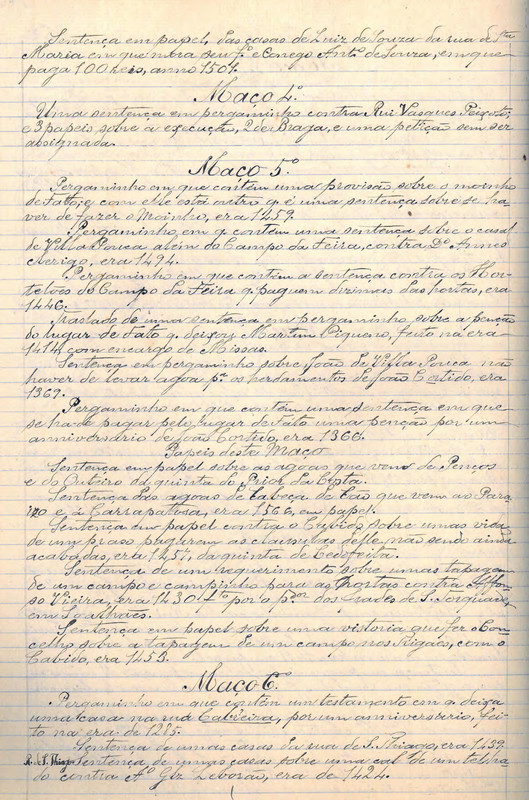 Sentença em papel, das casas de Luiz de Souza da rua de Sta
Maria em que mora seu fo. e Conego Anto. de Souza, em que
paga 100 reis, anno 1501.
Maço 4º
Uma sentença em pergaminho contra Rui Vasques Peixoto;
e 3 papeis sobre a execução, 2 de Braga, e uma petição sem ser
assignada.
Maço 5º
Pergaminho em que contém uma provisão sobre o moinho
de Fato; e com elle está outro q é uma sentença sobre se ha-
ver de fazer o Moinho, era 1459.
Pergaminho, em q contem uma sentença sobre o casal
de Villa Pouca alem do Campo da Feira, contra Dº Annes
era 1494.
Pergaminho em que contém a sentença contra os Hor-
telões do Campo da Feira q. paguem dizimas das hortas, era
1446.
Traslado de uma sentença em pergaminho sobre a penção
do lugar de Fato q. deixou Martim Piqueno, feito na era
1414, com encargo de Missas.
Sentença em pergaminho sobre João de Villa Pouca não
haver de levar agoa pª os herdamentos de João Cortido, era
1369.
Pergaminho em que contém uma sentença em que
se ha de pagar pelo lugar de Fato uma penção por um
anniversario de João Cortido, era 1366.
Papeis deste Maço
Sentença em papel sobre as agoas que vem de Penços
e do Outeiro da quinta do Prior da Costa.
Sentença das agoas de Cabeça de Cão que vem ao Para-
izo e á Carrapatosa, era 1566, em papel.
Sentença em papel contra o Cabido sobre umas vidas
de um praso pagirem as clausulas delle, não sendo ainda
acabadas, era 1457, da quinta de Cedofeita.
Sentença de um requerimento sobre umas tapagens
de um campo e campinho para as Hortas contra Affon-
so Vieira, era 1430 por o dos Frades de S. Torquato,
em
Sentença em papel sobre uma vistoria que fez o Con-
celho sobre a tapagem de um campo nos Rigaes, com o
Cabido, era 1453.
Maço 6º
Pergaminho em que contém um testamento com q. deixa
uma casa na rua Caldeirôa, por um anniversario, fei-
to na era de 1285.
Sentença de umas casas da rua de S. Thiago, era 1439.
R. S. Thiago Sentença de umas casas sobre uma cal de um telha-
do contra Aº Glz era de 1424.